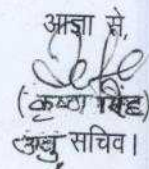 आज्ञा से,
(कृष्णा सिंह)
अनु सचिव।